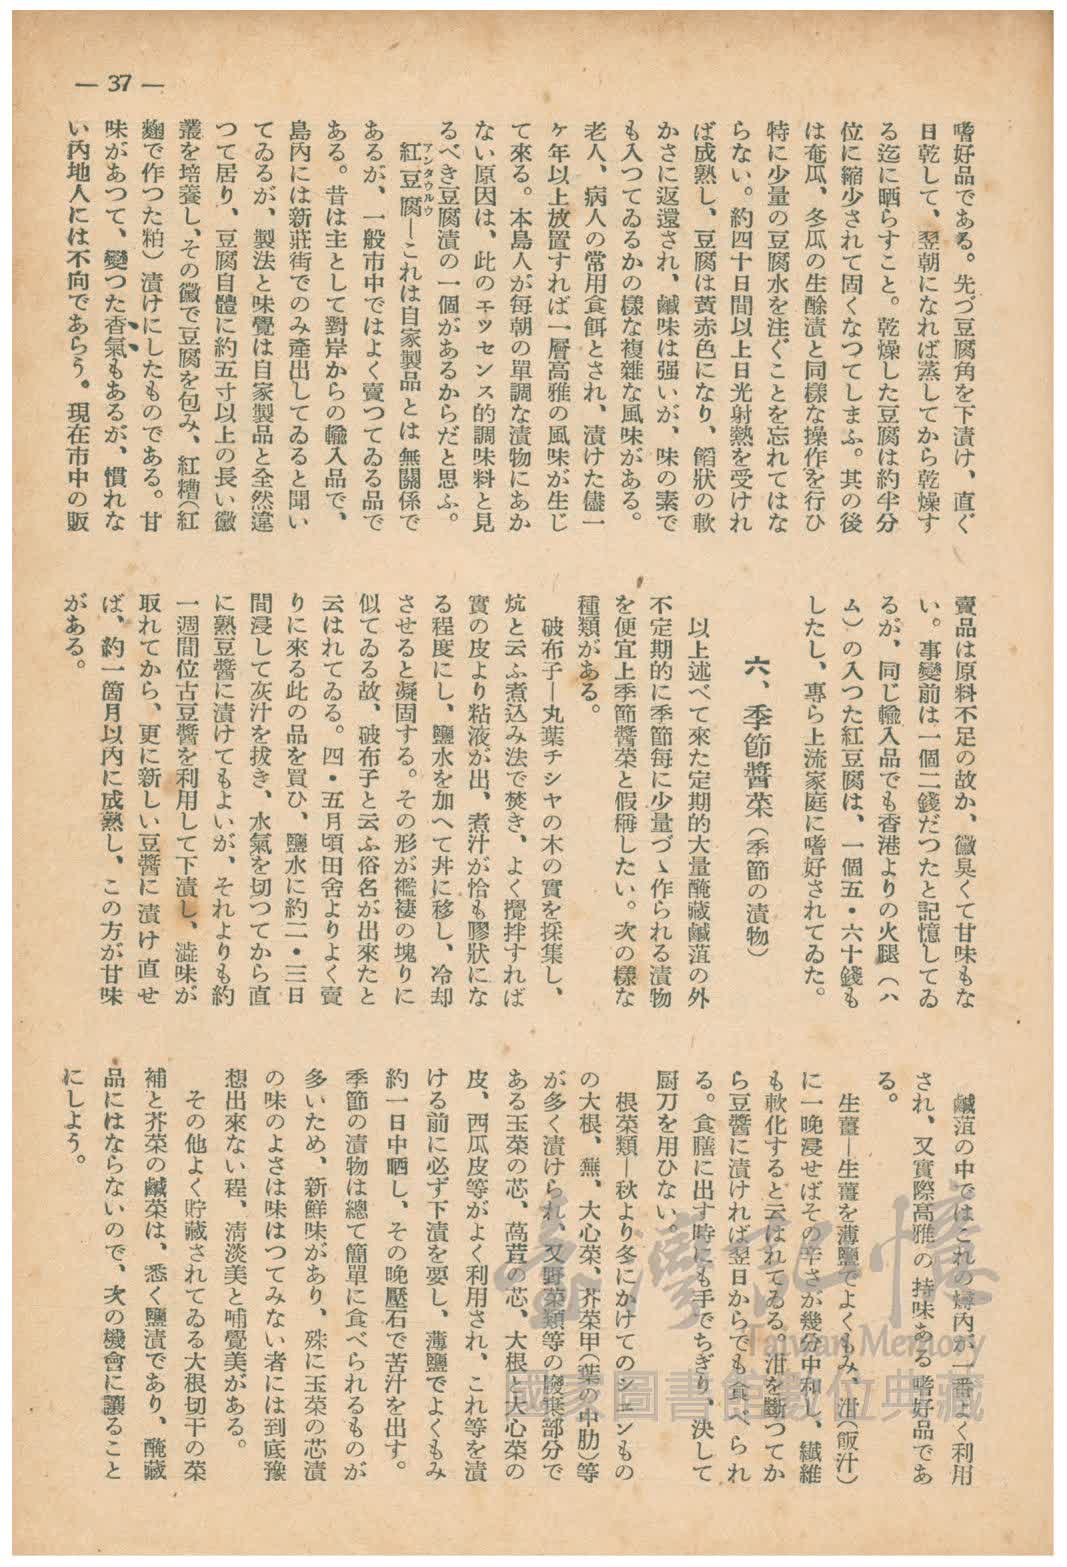 — 37 —
嗜好品である。先づ豆腐角を下漬け、直ぐ
日乾して、翌朝になれば蒸してから乾燥す
る迄に晒らすこと。乾燥した豆腐は約半分
位に縮少されて固くなつてしまふ。其の後
は奄瓜、冬瓜の生醶漬と同樣な操作を行ひ
特に少量の豆腐水を注ぐことを忘れてはな
らない。約四十日間以上日光射熱を受けれ
ば成熟し、豆腐は黃赤色になり、餡狀の軟
かさに返還され、鹹味は强いが、味の素で
も入つてゐるかの樣な複雜な風味がある。
老人、病人の常用食餌とされ、漬けた儘一
ケ年以上放置すれば一層高雅の風味が生じ
て來る。本島人が每朝の單調な漬物にあか
ない原因は、此のエッセンス的調味料と見
るべき豆腐漬の一個があるからだと思ふ。
紅豆腐—これは自家製品とは無關係で
アンタウルウ
あるが、一般市中ではよく賣つてゐる品で
ある。昔は主として對岸からの輸入品で、
島內には新莊街でのみ產出してゐると聞い
てゐるが、製法と味覺は自家製品と全然違
つて居り、豆腐自體に約五寸以上の長い黴
叢を培養し、その黴で豆腐を包み、紅糟(紅
麴で作つた粕)漬けにしたものである。甘
味があつて、變つた香氣もあるが、慣れな
い內地人には不向であらう。現在市中の販
賣品は原料不足の故か、黴臭くて甘味もな
い。事變前は一個二錢だつたと記憶してゐ
るが、同じ輸入品でも香港よりの火腿(ハ
ム)の入つた紅豆腐は、一個五・六十錢も
したし、專ら上流家庭に嗜好されてゐた。
六、季節醬菜(季節の漬物)
以上述べて來た定期的大量醃藏鹹菹の外
不定期的に季節每に少量づゝ作られる漬物
を便宜上季節醬菜と假稱したい。次の樣な
種類がある。
破布子—丸葉チシヤの木の實を採集し、
炕と云ふ煮込み法で焚き、よく攪拌すれば
實の皮より粘液が出、煮汁が恰も膠狀にな
る程度にし、鹽水を加へて丼に移し、冷却
させると凝固する。その形が襤褸の塊りに
似てゐる故、破布子と云ふ俗名が出來たと
云はれてゐる。四・五月頃田舍よりよく賣
りに來る此の品を買ひ、鹽水に約二・三日
間浸して灰汁を拔き、水氣を切つてから直
に熟豆醬に漬けてもよいが、それよりも約
一週間位古豆醬を利用して下漬し、澁味が
取れてから、更に新しい豆醬に漬け直せ
ば、約一箇月以內に成熟し、この方が甘味
がある。
鹹菹の中ではこれの內が一番よく利用
され、又實際高雅の持味ある嗜好品であ
る。
生薑—生薑を薄鹽でよくもみ、泔(飯汁)
に一晚浸せばその辛さが幾分中和し、纖維
も軟化すると云はれてゐる。泔を斷つてか
ら豆醬に漬ければ翌日からでも食べられ
る。食膳に出す時にも手でちぎり、決して
厨刀を用ひない。
根菜類—秋より冬にかけてのシユンもの
の大根、蕪、大心菜、芥菜甲(葉の中肋)等
が多く漬けられ、又野菜類等の廢棄部分で
ある玉菜の芯、萵苣の芯、大根と大心菜の
皮、西瓜皮等がよく利用され、これ等を漬
ける前に必ず下漬を要し、薄鹽でよくもみ
約一日中晒し、その晚壓石で苦汁を出す。
季節の漬物は總て簡單に食べられるものが
多いため、新鮮味があり、殊に玉菜の芯漬
の味のよさは味はつてみない者には到底豫
想出來ない程、淸淡美と哺覺美がある。
その他よく貯藏されてゐる大根切干の菜
補と芥菜の鹹菜は、悉く鹽漬であり、醃藏
品にはならないので、次の機會に讓ること
にしよう。
臺灣記憶
Taiwan Memory
國家圖書館數位典藏